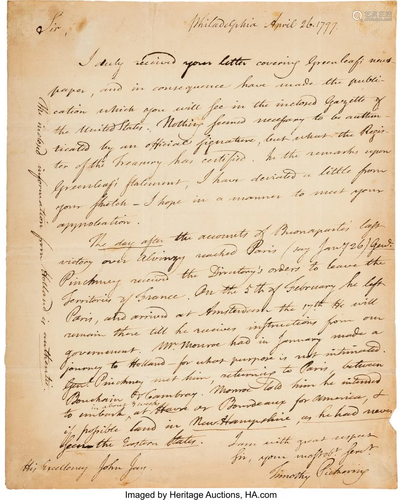 Philadelphia April 26. 1797
Sir,
I duly received your letter covering Greenleaf's news
paper, and in consequence have made the publi-
cation which you will see in the inclosed Gazette of
the United States. Nothing seemed necessary to be authen-
ticated by an official signature, but what the Regis-
ter of the Treasury has certified. In the remarks upon
Greenleaf's statement, I have deviated a little from
your sketch - I hope in a manner to meet your
approbation.
The day after the accounts of Buonaparte's last
victory over Alvinzy reached Paris (say Jany 26) Genl.
Pinckney received the Directory's orders to leave the
Territories of France. On the 5th of February he left
Paris, and arrived at Amsterdam the 17th. He will
remain there till he receives instructions from our
government. Mr. Monroe had in January made a
journey to Holland for what purpose is not intimated.
Genl. Pinckney met him, returning to Paris, between
Bouchain & Cambray. Monroe told him he intended
to embark, at Havre or Bourdeaux for America, &
if possible land in New Hampshire, as he had never
seen the Eastern States.
I am with great respect
Sir, your most obt. servt.
Timothy Pickering
His Excellency John Jay
The inclosed information from Holland is authentic
Imaged by Heritage Auctions, HA.com